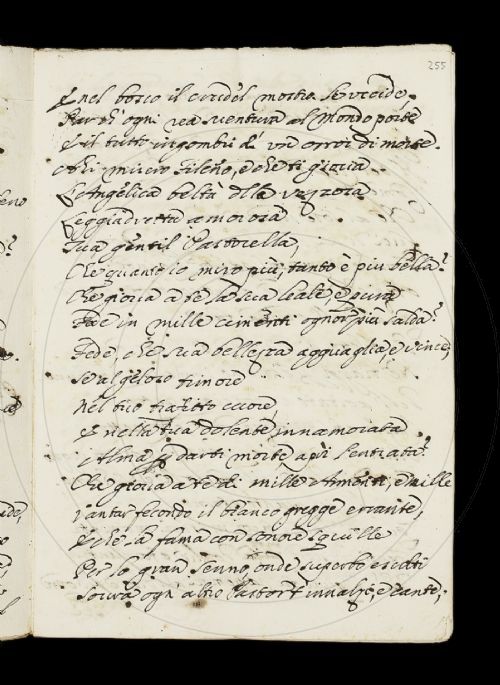 255
E nel bosco il crudel mostro. Se uccide,
Par ch' ogni rea suentura al Mondo porte
E il tutto ingombri d' un orror di morte.
Ohi misero Fileno, e che ti gioua
L'Angelica beltà della uezzosa
Leggiadretta amorosa
Tua gentil Pastorella,
Che quanto io miro più, tanto è piu bella?
Che gioua a te la sua leale, e pura
Fede in mille cimenti ognor più salda?
Fede, che sua bellezza agguaglia, e vince,
Se al geloso timore
Nel tuo trafitto cuore,
E nella tua dolente innamorata
Alma p darti morte aprì l'entrata?
Che gioua a te di mille Armenti, e mille
Vantar fecondo il bianco gregge errante,
E che la fama con sonore squille
Per lo gran senno, onde superbo
Soura ogn altro Pastor t' innalzi, e cante;